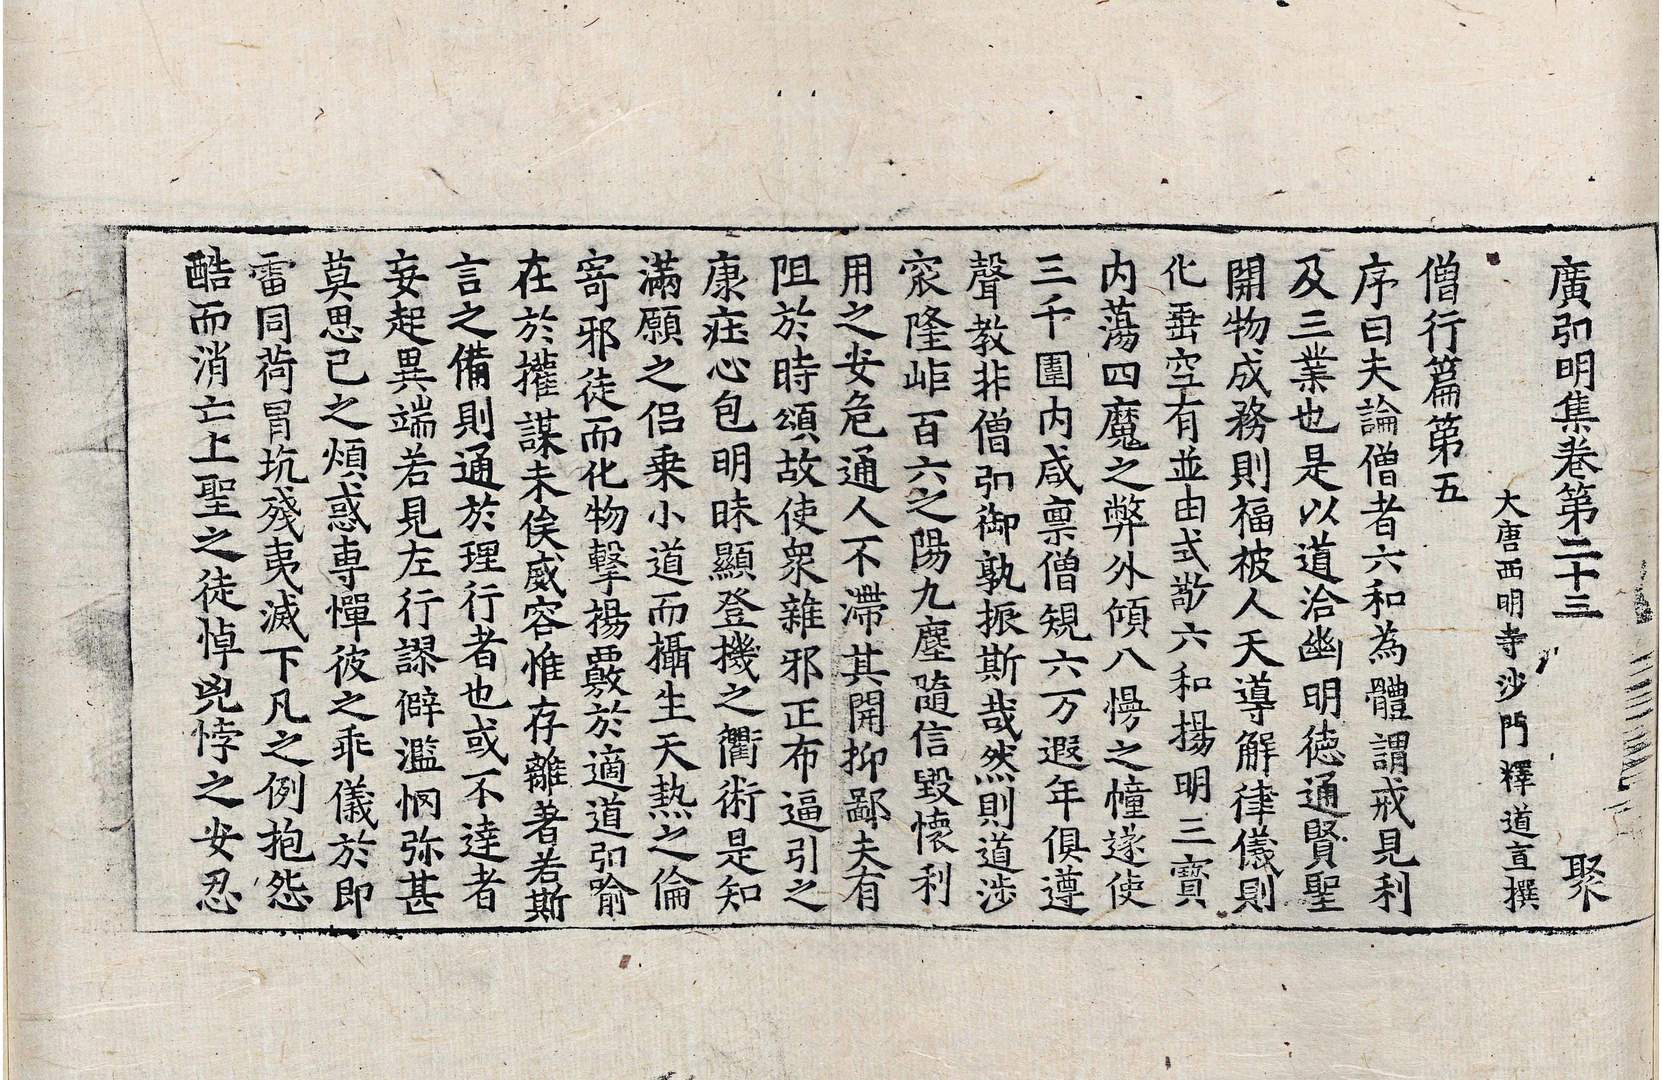 廣弘明集卷第二十三 聚
大唐西明寺沙門釋道宣撰
僧行篇第五
序曰夫論僧者六和為體謂戒見利
及三業也是以道洽幽明德通賢聖
開物成務則福被人天導解律儀則
化垂空有並由式敬六和揚明三寶
內蕩四魔之弊外傾八慢之幢遂使
三千圍內咸稟僧規六万遐年俱遵
聲教非僧弘御孰振斯哉然則道涉
窊隆岠百六之陽九塵隨信毀懷利
用之安危通人不滯其開抑鄙夫有
阻於時頌故使眾雜邪正布逼引之
康莊心包明昧顯登機之衢術是知
滿願之侶乗小道而攝生天熱之倫
寄邪徒而化物擊揚覈於適道弘喻
在於權謀未俟威容惟存離著若斯
言之備則通於理行者也或不達者
妄起異端若見左行謬僻濫惘弥甚
莫思己之煩惑專憚彼之乖儀於即
雷同荷冒坑殘夷滅下凡之例抱怨
酷而消亡上聖之徒悼兇悖之安忍